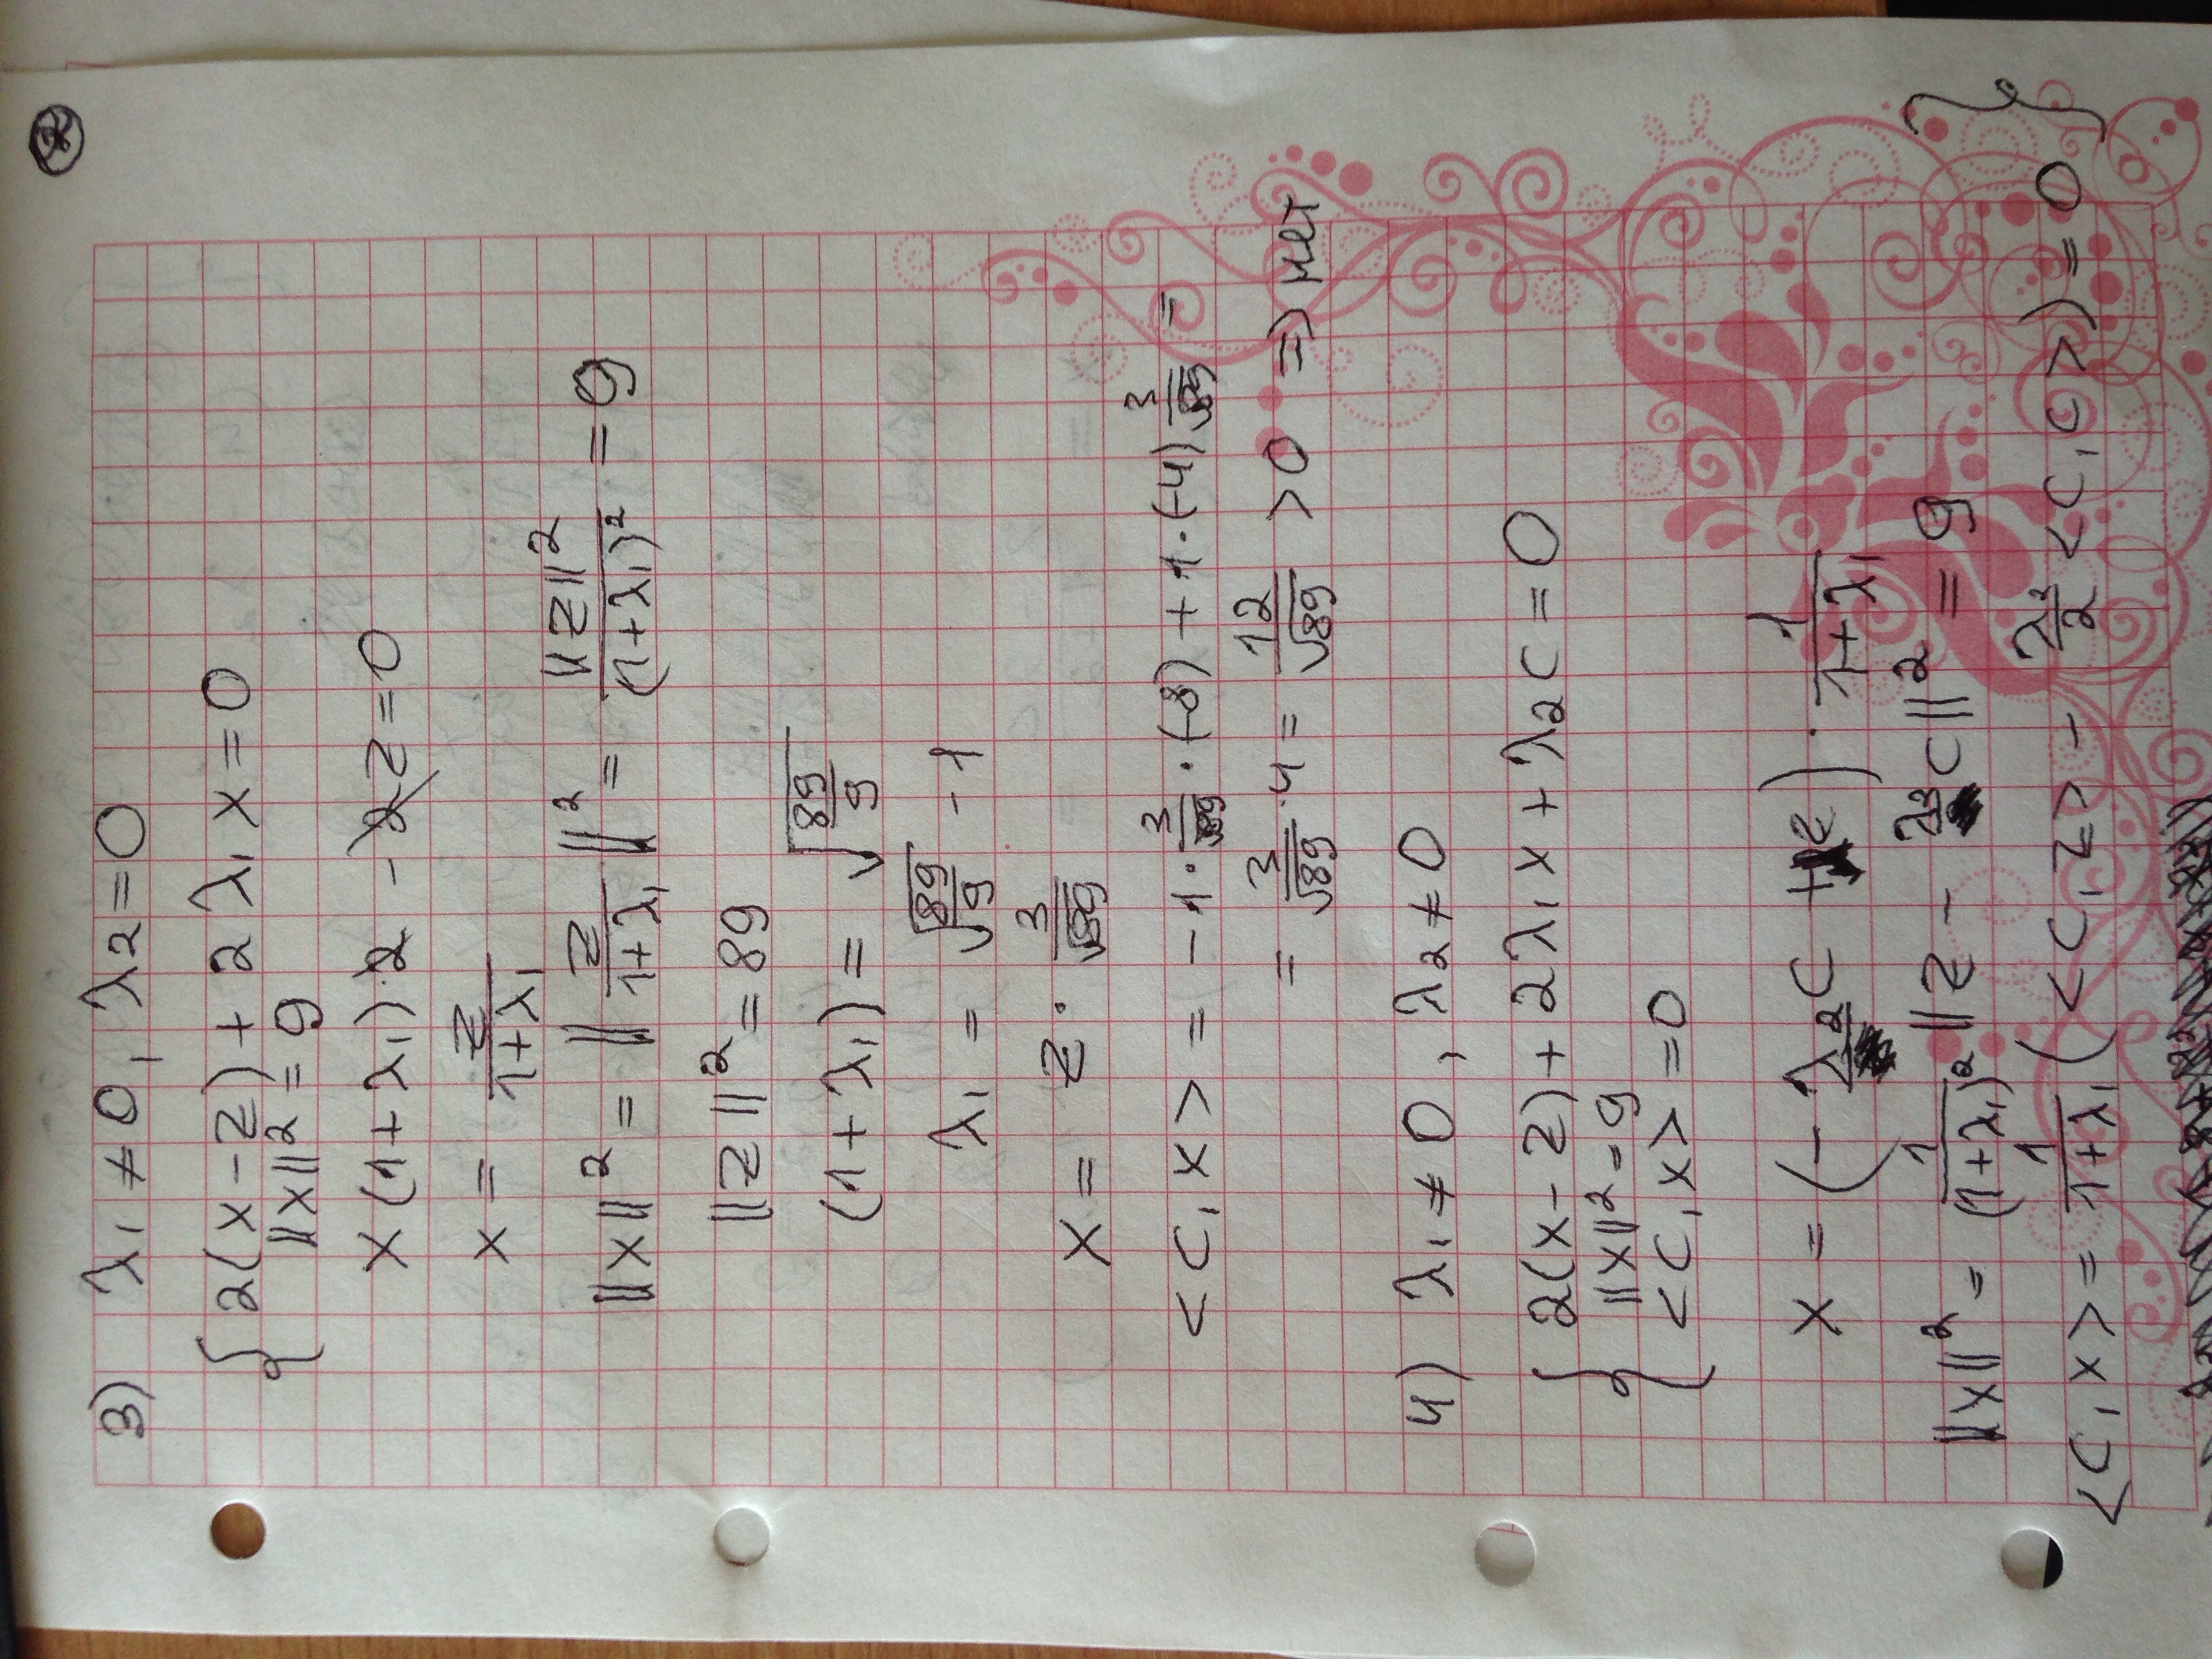 3) λ₁ ≠ 0, λ₂ = 0
{ 2(x-z) + 2λ₁x = 0
||x||² = 9
x(1+λ₁)·2 - 2z = 0
x = z/(1+λ₁)
||x||² = ||z/(1+λ₁)||² = ||z||²/(1+λ₁)² = 9
||z||² = 89
(1+λ₁) = √(89/9)
λ₁ = √(89/9) - 1
x = z · 3/√89
<c, x> = -1 · 3/√89 · (-8) + 1·(-4) 3/√89 =
= 3/√89 · 4 = 12/√89 > 0 => нет
4) λ₁ ≠ 0, λ₂ ≠ 0
{ 2(x-z) + 2λ₁x + λ₂c = 0
||x||² = 9
<c, x> = 0
x = (- λ₂/ c + z) · 1/(1+λ₁)
||x||² = 1/(1+λ₁)² ||z - λ₂/ c||² = 9 }
<c, x> = 1/(1+λ₁) (<c, z> - λ₂/2 <c, c>) = 0